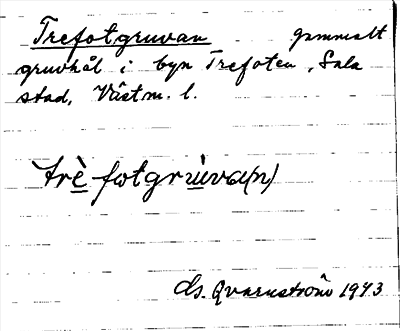 Trefotgruvan gammalt
gruvhål i byn Trefoten, Sala
stad, Västm. l.
trè fotgrùva(n)
Gs. Qvarnström 1943